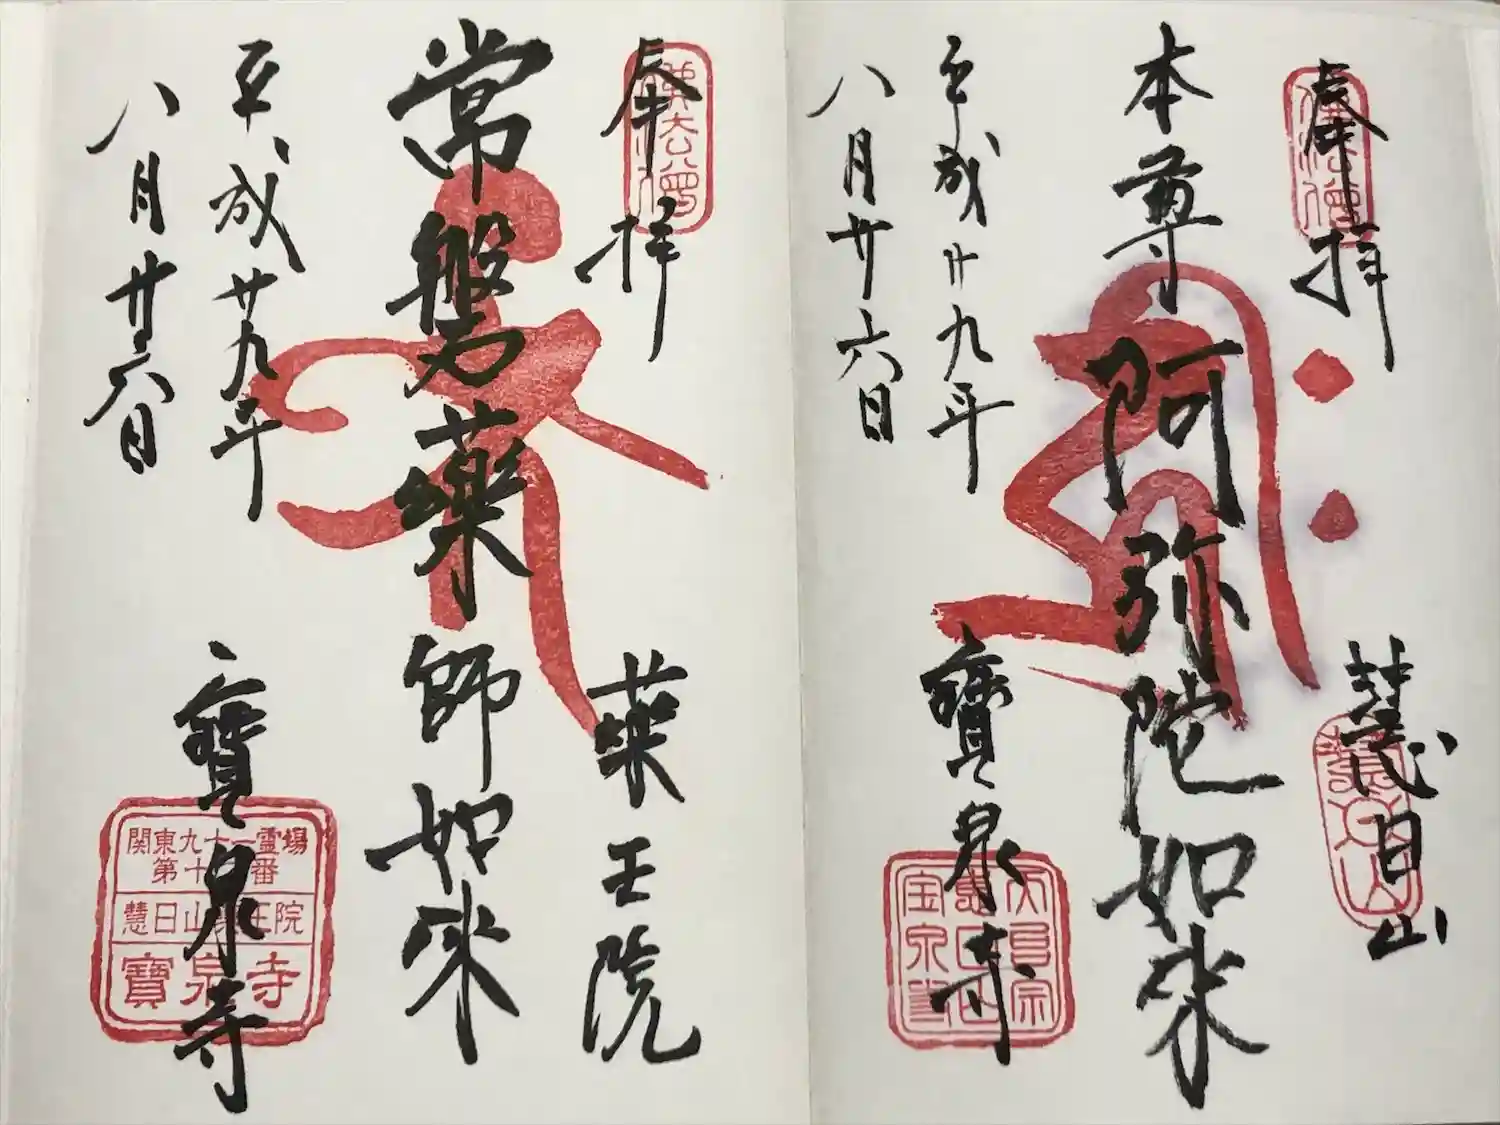 奉拝
慧日山
本尊阿弥陀如来
平成廿九年
八月廿六日
寶泉寺
奉拝
薬王院
常磐薬師如来
平成廿九年
八月廿六日
寶泉寺
関東九十一霊場
第十番
慧日山薬王院
寶泉寺